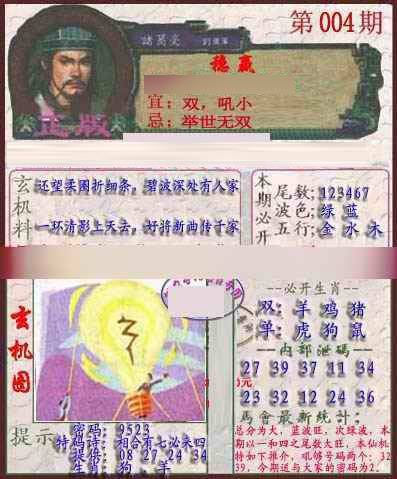 第004期
諸葛亮
稳赢
宜：双，吼小
忌：举世无双
正版
玄机料
还望柔圈折细条，碧波深处有人家
一环清影上天去，好将新曲传千家
本期必开
尾数：123467
波色：绿 蓝
五行：金 水 木
玄机图
--必开生肖--
双：羊 鸡 猪
单：虎 狗 鼠
--内部泄码--
27 39 37 11 34
23 32 12 24 36
馬會最新統計：
总分为大，蓝波旺，次绿波，本
期以一和四之尾数大旺，本仙机
特如下推介，吼够号码两个：32
39，今期送与大家的密码为2。
提示
密码：9523
特码诗：相合有七必来四
提供：08 27 24 34
生肖：狗 羊